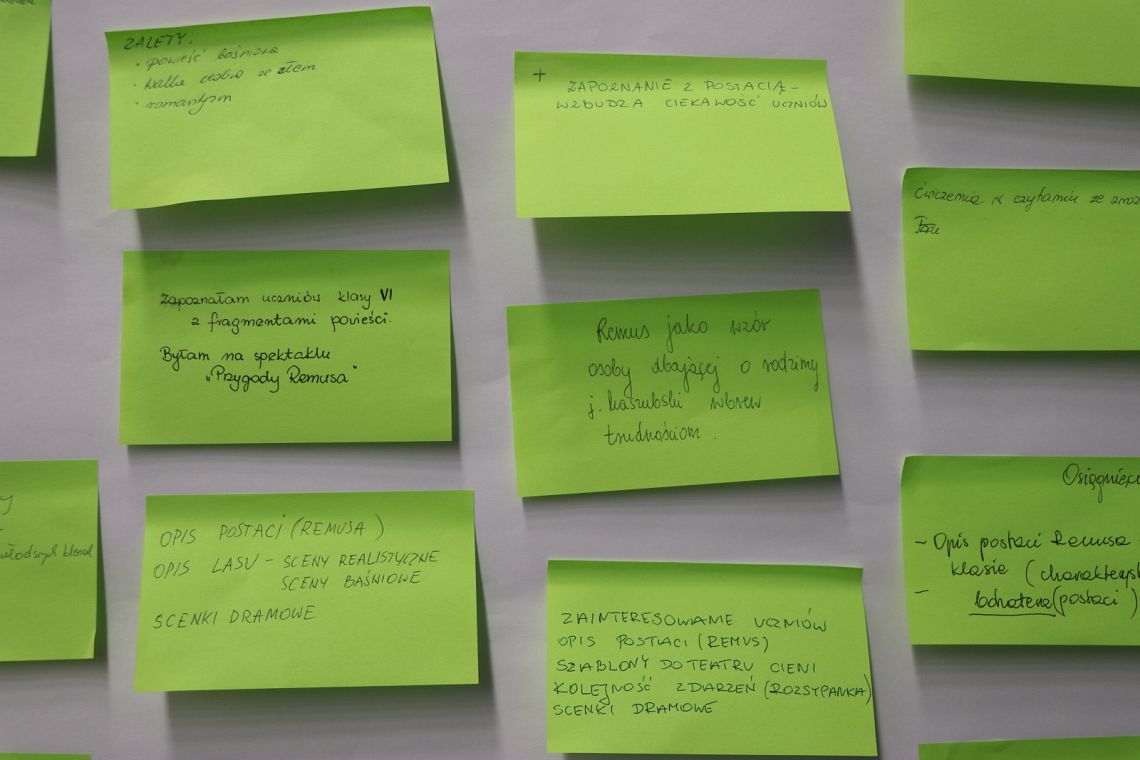 ZALETY:
• powieść baśniowa
• walka dobra ze złem
• romantyzm
+
ZAPOZNANIE Z POSTACIĄ –
WZBUDZA CIEKAWOŚĆ UCZNIÓW
Ćwiczenia w czytaniu ze
Zapoznałam uczniów klasy VI
z fragmentami powieści.
Byłam na spektaklu
"Przygody Remusa"
Remus jako wzór
osoby dbającej o rodzimy
j. kaszubski wbrew
trudnościom.
OPIS POSTACI (REMUSA)
OPIS LASU – SCENY REALISTYCZNE
SCENY BAŚNIOWE
SCENKI DRAMOWE
ZAINTERESOWANIE UCZNIÓW
OPIS POSTACI (REMUS)
SZABLONY DO TEATRU CIENI
KOLEJNOŚĆ ZDARZEŃ (ROZSYPANKA)
SCENKI DRAMOWE
Osiągnięc
– Opis postaci Remusa
klasie (charakteryst
– bohatera (postaci)